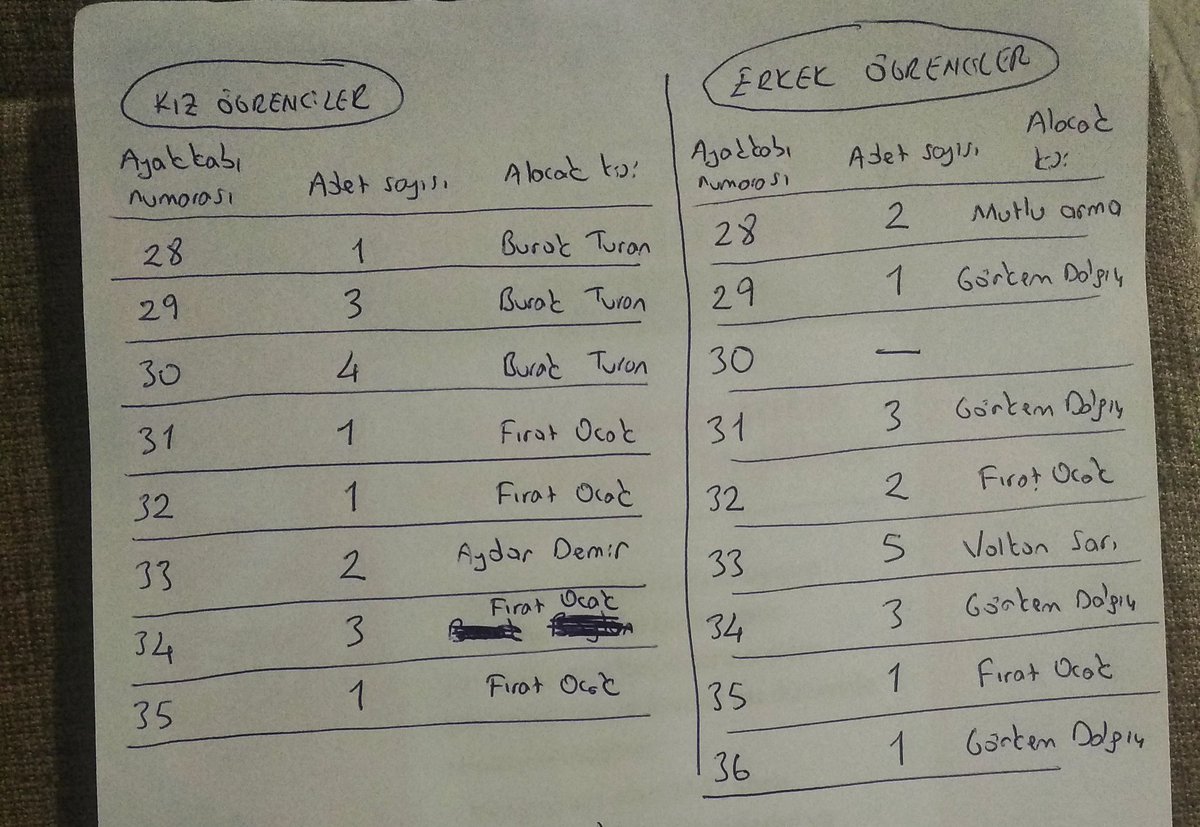 KIZ ÖĞRENCİLER
Ayakkabı numarası Adet sayısı Alacak kişi
28 1 Burak Turan
29 3 Burak Turan
30 4 Burak Turan
31 1 Fırat Ocak
32 1 Fırat Ocak
33 2 Aydar Demir
34 3 Fırat Ocak
35 1 Fırat Ocak
ERKEK ÖĞRENCİLER
Ayakkabı numarası Adet sayısı Alacak kişi
28 2 Mutlu arma
29 1 Görkem Dalgıç
30 —
31 3 Görkem Dalgıç
32 2 Fırat Ocak
33 5 Volkan Sarı
34 3 Görkem Dalgıç
35 1 Fırat Ocak
36 1 Görkem Dalgıç